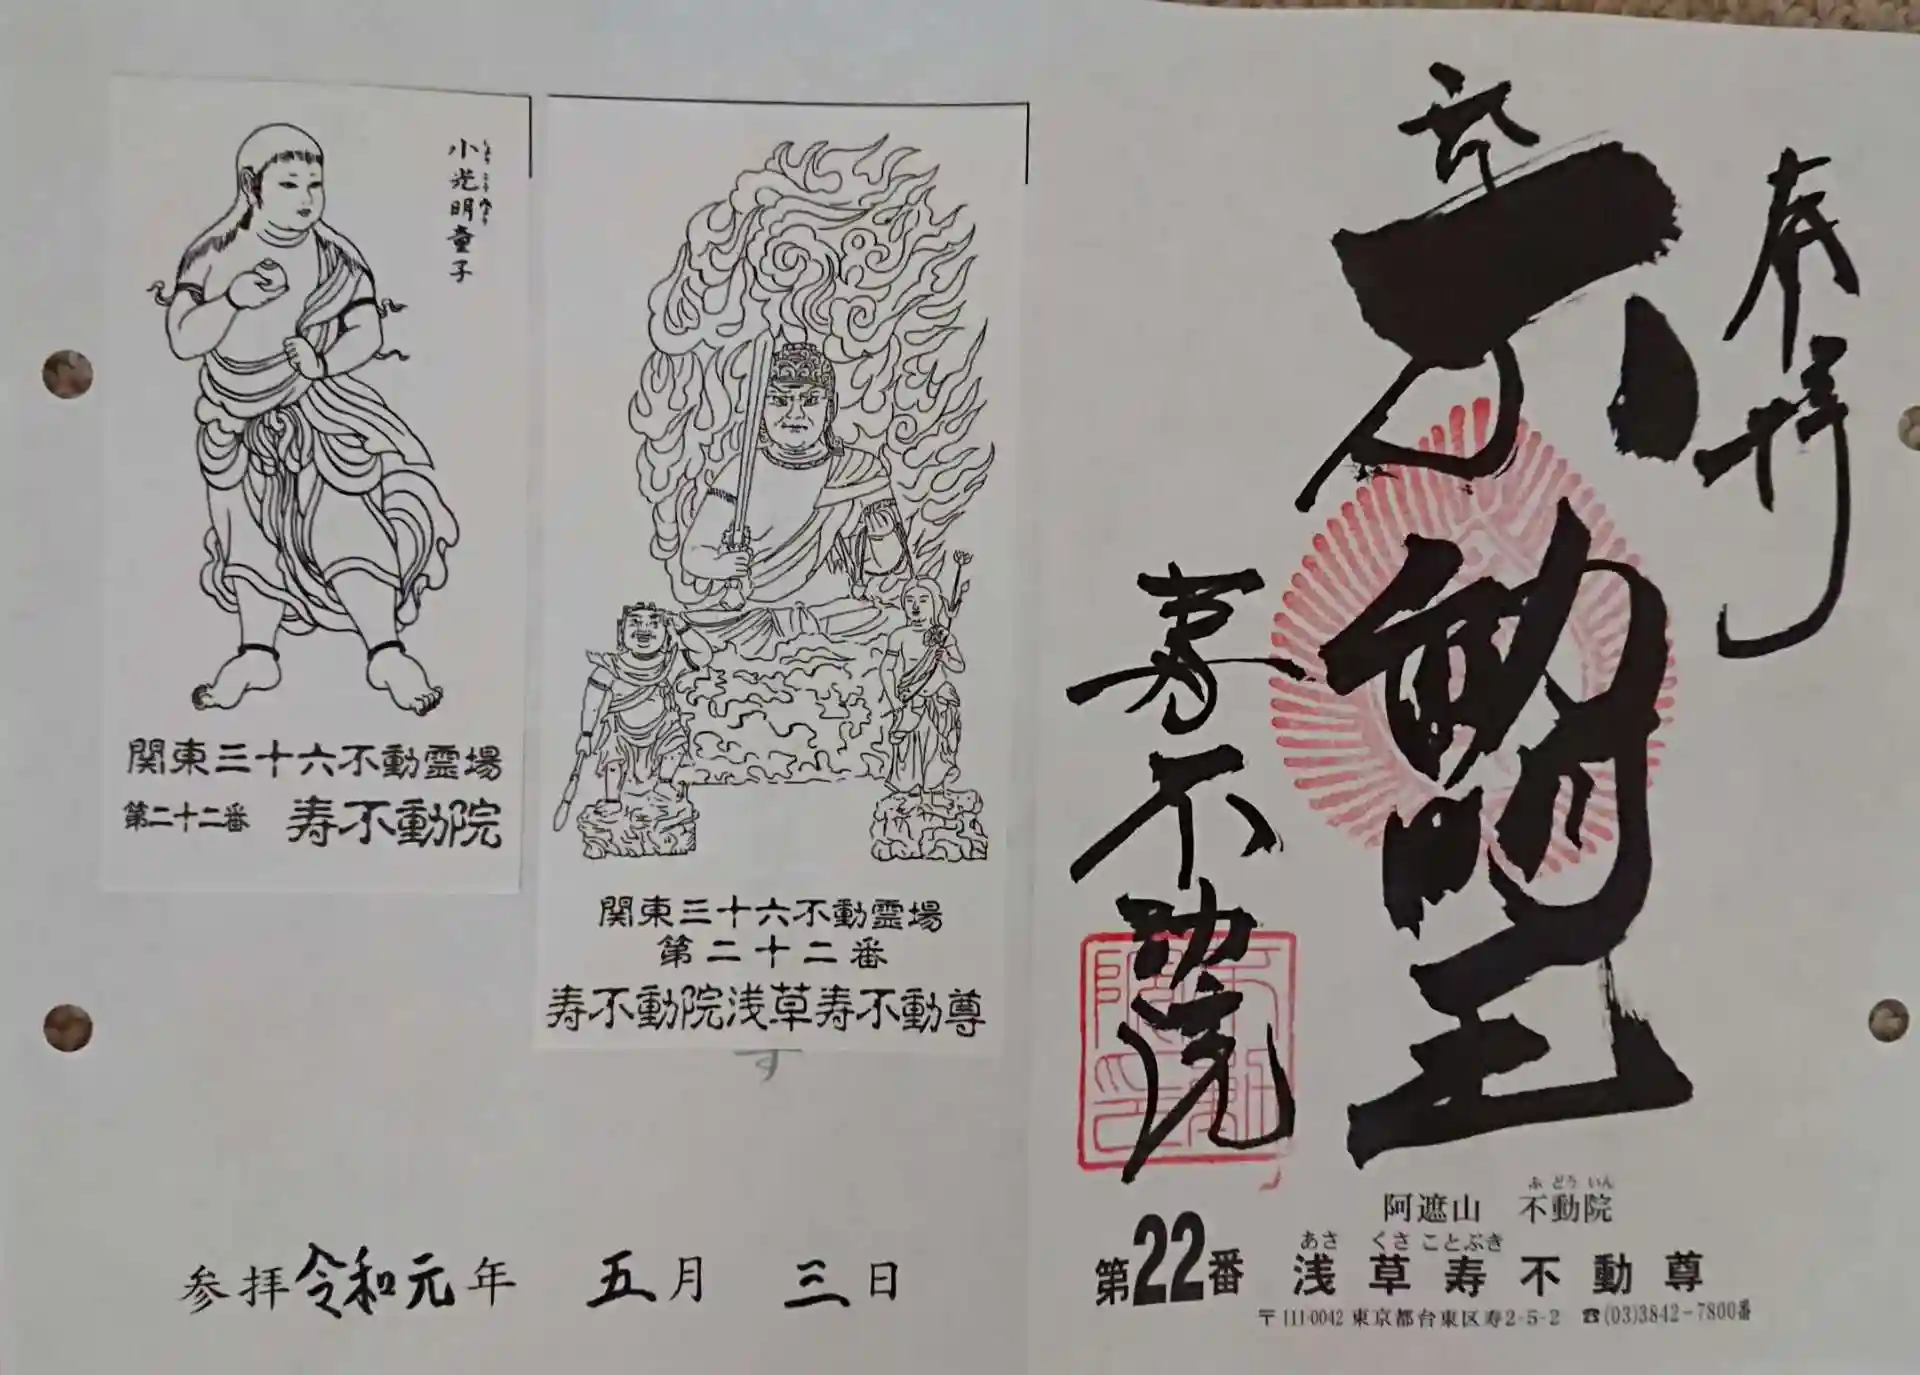 小光明童子
しょうこうみょう
関東三十六不動霊場
第二十二番 寿不動院
関東三十六不動霊場
第二十二番
寿不動院浅草寿不動尊
す
参拝令和元年 五月 三日
奉拝
不動明王
寿不動院
ふどういん
阿遮山 不動院
あさくさことぶき
第22番 浅草寿不動尊
〒111-0042 東京都台東区寿2-5-2 ☎(03)3842-7800番